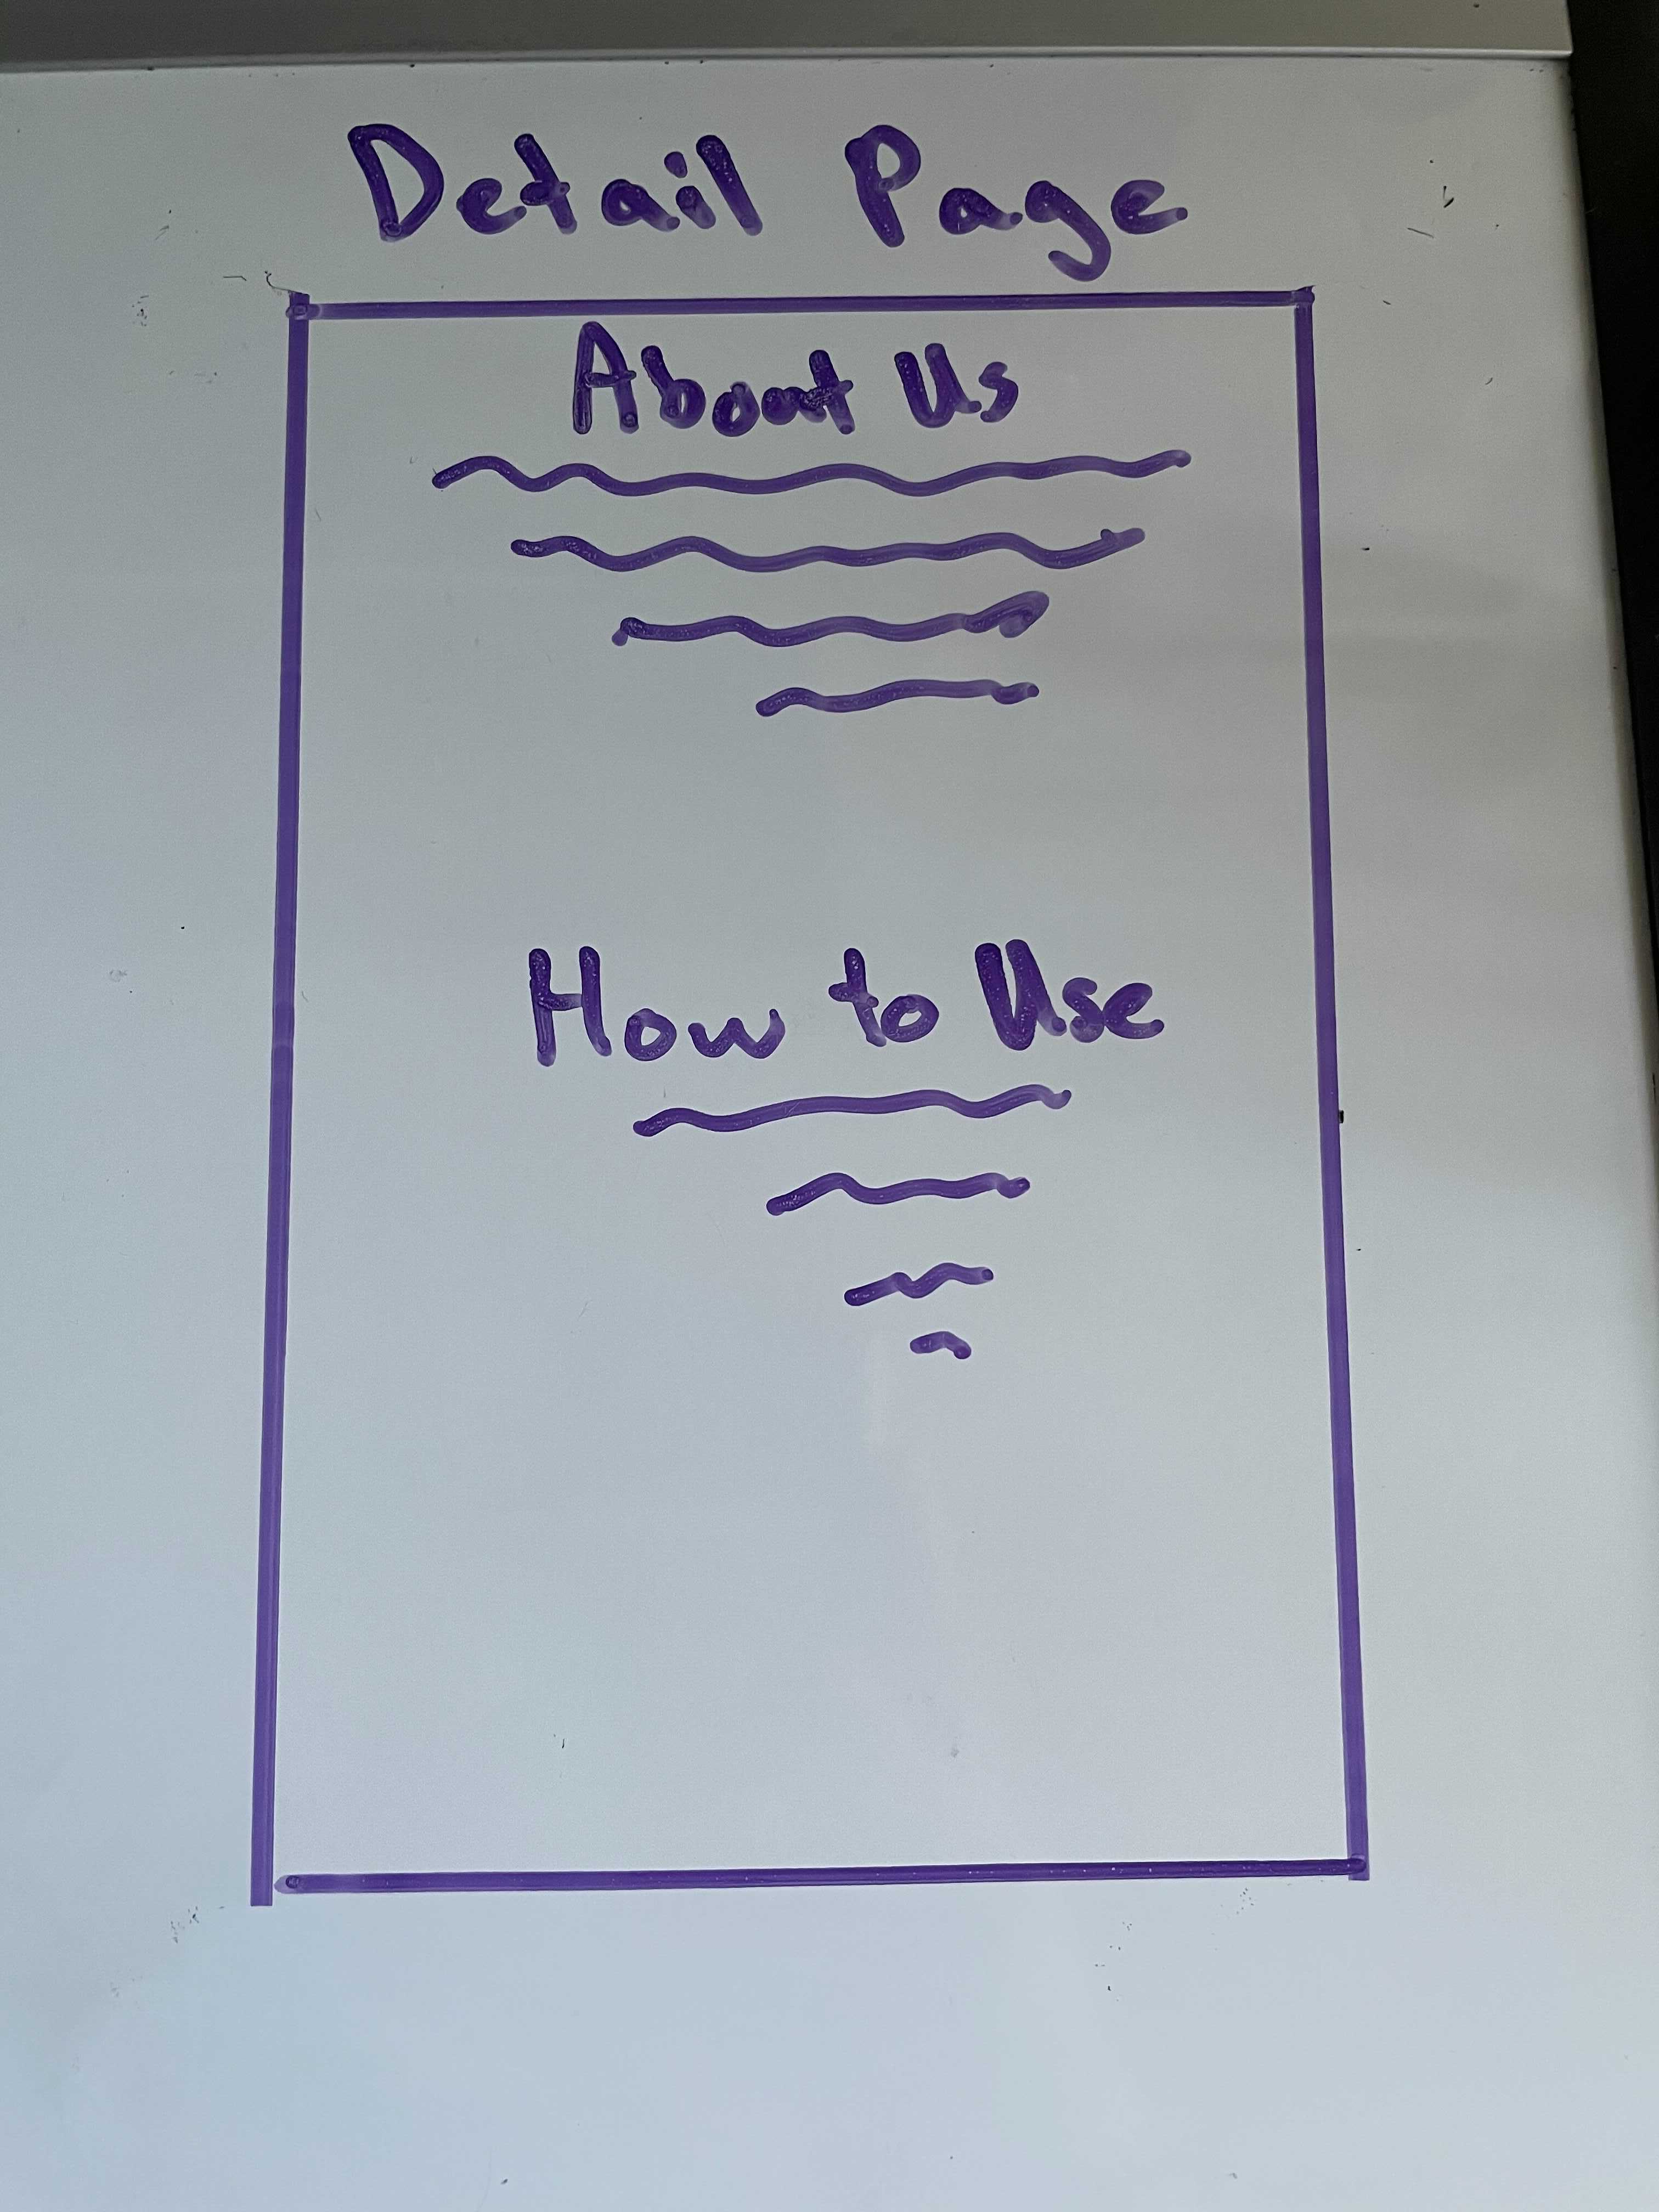 Detail Page
About Us
How to Use